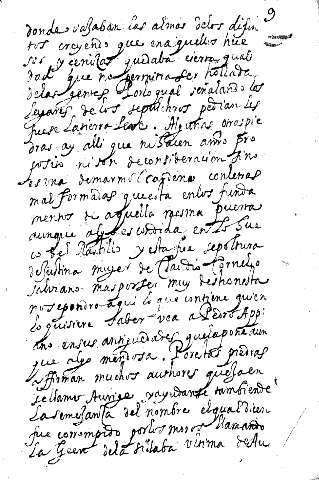 9
donde vajaban las almas delos difun
tos creyendo que en aquellos hue
sos y cenizas quedaba cierta quali
dad que no permitia ser hollada
delas gentes Porlo qual señalando los
lugares de los sepulchros pedian les
fuese La tierra Leve. Algunas otras pie
dras ay alli que ni hacen a nro pro
posito ni son de consideracion sino
es una de marmol Cardeno con letras
mal formadas que esta en los funda
mentos de aquella mesma puerta
aunque escondida en lo hue
co del Rastrillo y esta fue sepoltura
de Justina muger de Claudio Cornelio
salviano mas por ser muy deshonesta
no se pondra aqui lo que contiene quien
lo quisiere saber vea a Pedro Appi
ano en sus antiguedades que la pone aun
que algo mendosa. Por estas piedras
affirman muchos authores que Jaen
se llamo Aurige y ayudanse tambien de
La semejanza del nombre el qual dicen
fue corrompido por los moros llamando
La Geen dela silaba ultima de Au